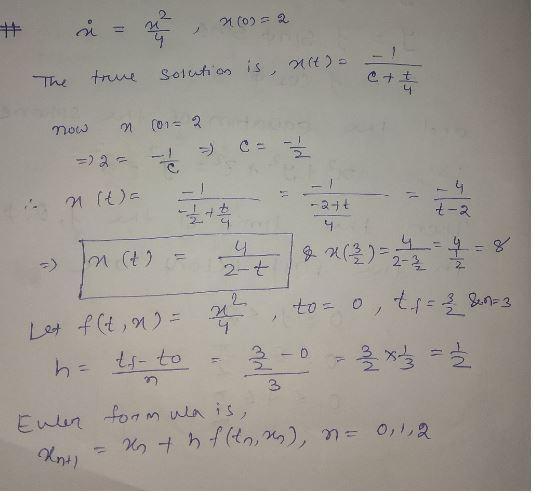 # ẋ = x²/4 , x(0) = 2
The true solution is, x(t) = -1/(c + t/4)
now x(0) = 2
=> 2 = -1/c => c = -1/2
∴ x(t) = -1/(-1/2 + t/4) = -1/((-2+t)/4) = -4/(t-2)
=> x(t) = 4/(2-t) & x(3/2) = 4/(2-3/2) = 4/(1/2) = 8
Let f(t,x) = x²/4 , t0 = 0 , tf = 3/2 & n=3
h = (tf - t0)/n = (3/2 - 0)/3 = 3/2 × 1/3 = 1/2
Euler formula is,
xn+1 = xn + h f(tn, xn), n = 0,1,2